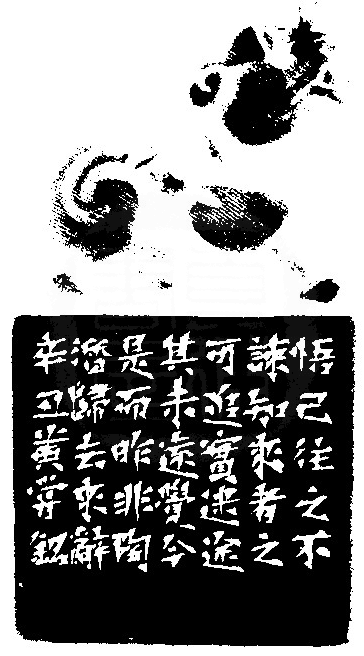 悟已往之不
諫知來者之
可追實迷途
其未遠覺今
是而昨非陶
潛歸去來辭
辛丑黃嘗銘